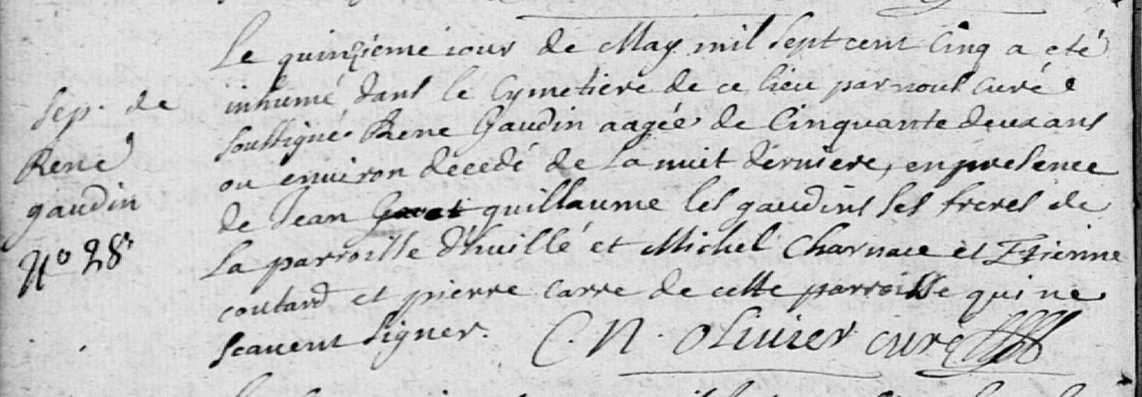 Le quinzieme iour de May mil sept cent cinq a eté
inhumé dans le Cymetiere de ce lieu par nous curé
soussigné Rene Gaudin aagée de Cinquante deux ans
ou environ decedé de la nuit derniere, en presence
de Jean guillaume les gaudins ses freres de
la parroisse d'huillé et Michel Charnace et Etienne
coutard et pierre carre de cette parroisse qui ne
scavent signer. C. N. Olivier curé
Sep. de
René
gaudin
No 28